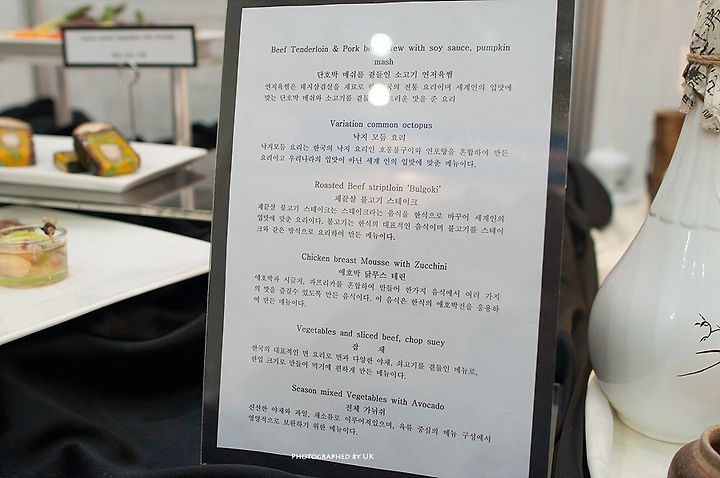 Beef Tenderloin & Pork stew with soy sauce, pumpkin
mash
단호박 메쉬를 곁들인 소고기 연저육찜
연저육찜은 돼지삼겹살을 재료로 한국의 전통 요리이며 세계인의 입맛에
맞는 단호박 메쉬와 소고기를 맛을 준 요리
Variation common octopus
낙지 모듬 요리
낙지모듬 요리는 한국의 낙지 요리인 호롱불구이와 연포탕을 혼합하여 만든
요리이고 우리나라의 입맛이 아닌 세계 인의 입맛에 맞춘 메뉴이다.
Roasted Beef striptloin 'Bulgoki'
채끝살 불고기 스테이크
채끝살 불고기 스테이크는 스테이크라는 음식을 한식으로 바꾸어 세계인의
입맛에 맞춘 요리이다. 불고기는 한식의 대표적인 음식이며 불고기를 스테이
크와 같은 방식으로 요리하여 만든 메뉴이다.
Chicken breast Mousse with Zucchini
애호박 닭무스 테린
애호박과 시금치, 파프리카를 혼합하여 만들어 한가지 음식에서 여러 가지
의 맛을 즐길수 있도록 만든 음식이다. 이 음식은 한식의 애호박전을 응용하
여 만든 메뉴이다.
Vegetables and sliced beef, chop suey
잡 채
한국의 대표적인 면 요리로 면과 다양한 야채, 쇠고기를 곁들인 메뉴로,
한입 크기로 만들어 먹기에 편하게 만든 메뉴이다.
Season mixed Vegetables with Avocado
전체 가뉘쉬
신선한 야채와 과일, 채소류로 이루어져있으며, 육류 중심의 메뉴 구성에서
영양적으로 보완하기 위한 메뉴이다.
PHOTOGRAPHED BY UK